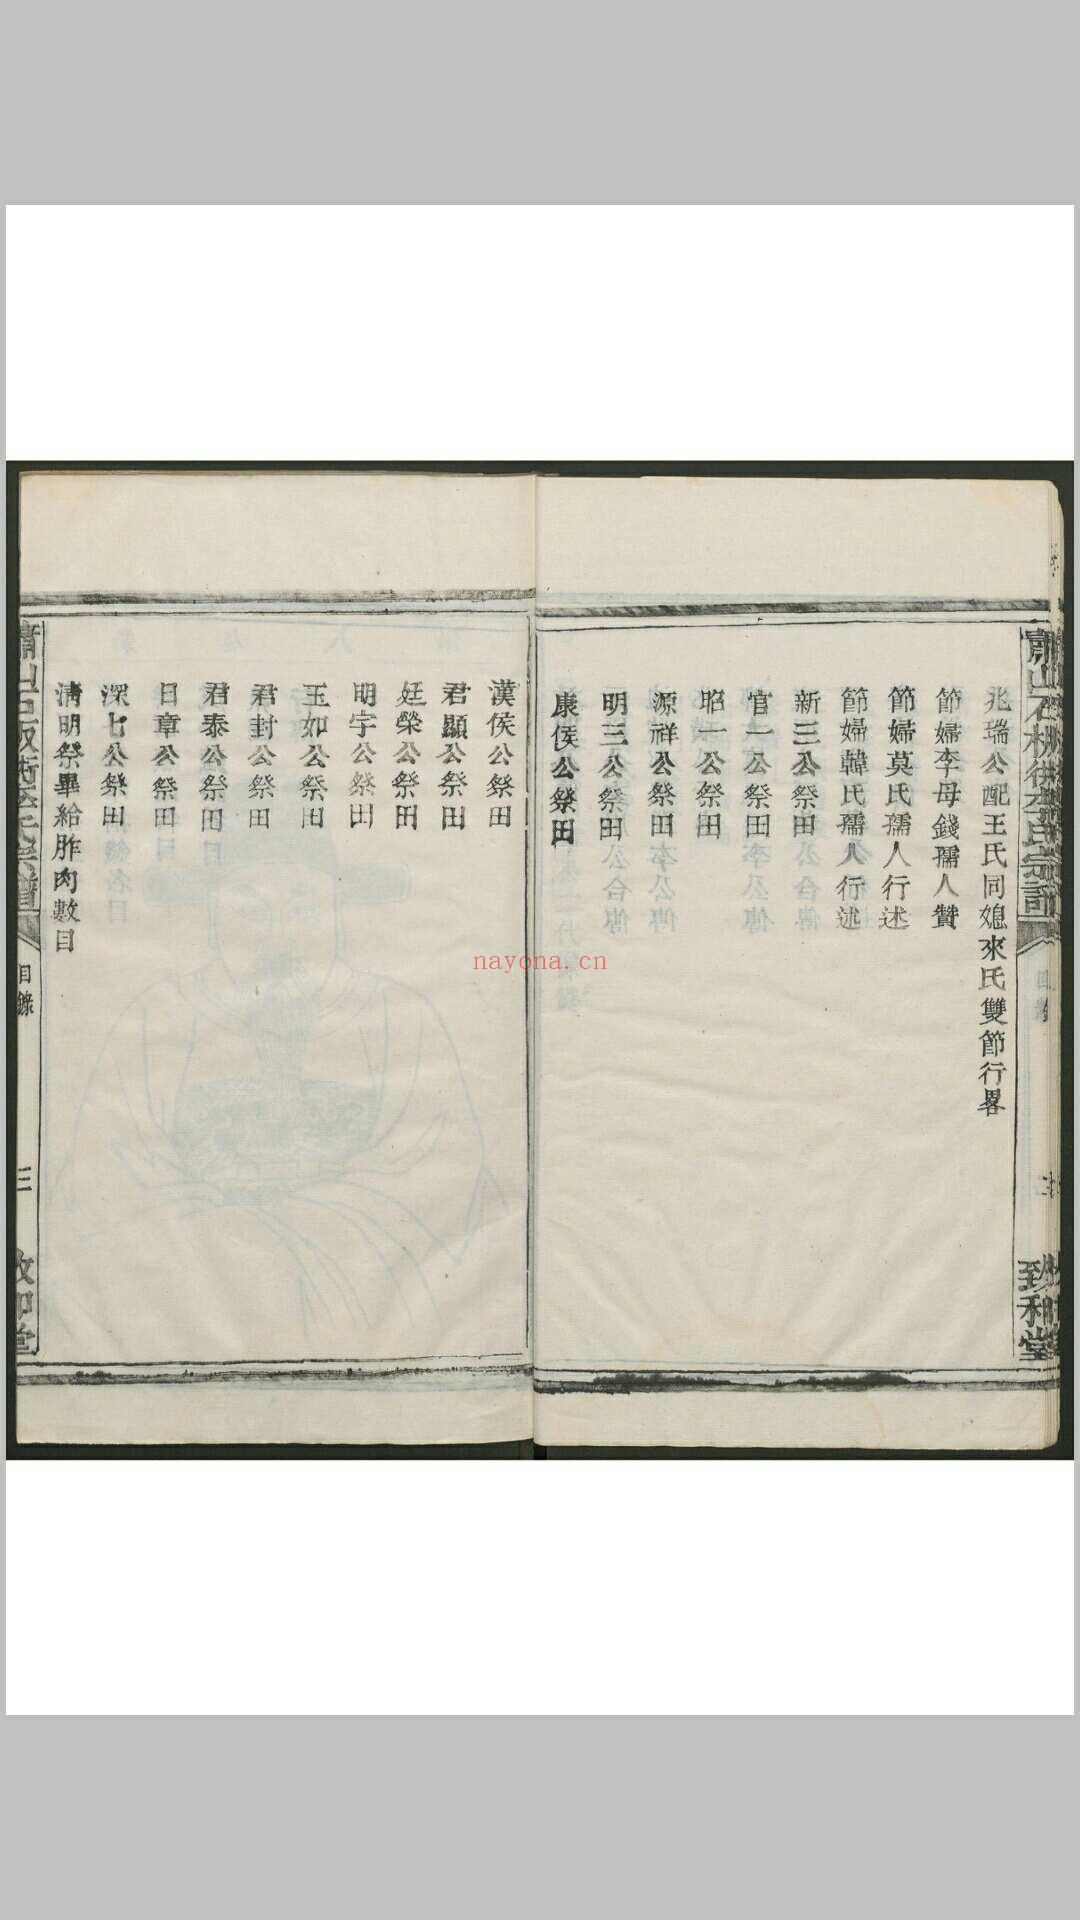 兆瑞公配王氏同媳來氏雙節行畧
節婦李母錢孺人贊
節婦莫氏孺人行述
節婦韓氏孺人行述
新三公祭田
官一公祭田
昭一公祭田
源祥公祭田
明三公祭田
康侯公祭田
漢侯公祭田
君顯公祭田
廷榮公祭田
明宇公祭田
玉如公祭田
君封公祭田
君泰公祭田
日章公祭田
深七公祭田
淸明祭畢給胙肉數目
目錄
三
致和堂
nayona.cn